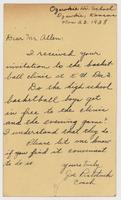 Ozawkie Hi School
Ozawkie, Kansas
Nov 23, 1938
Dear Mr. Allen:
I received your
invitation to the basket-
ball clinic at
Do the high school
basketball boys get
in free to the clinic
and the evening game? I
understand that they do.
Please let me know
if you find it convenient
to do so.
Yours truly,
Coach